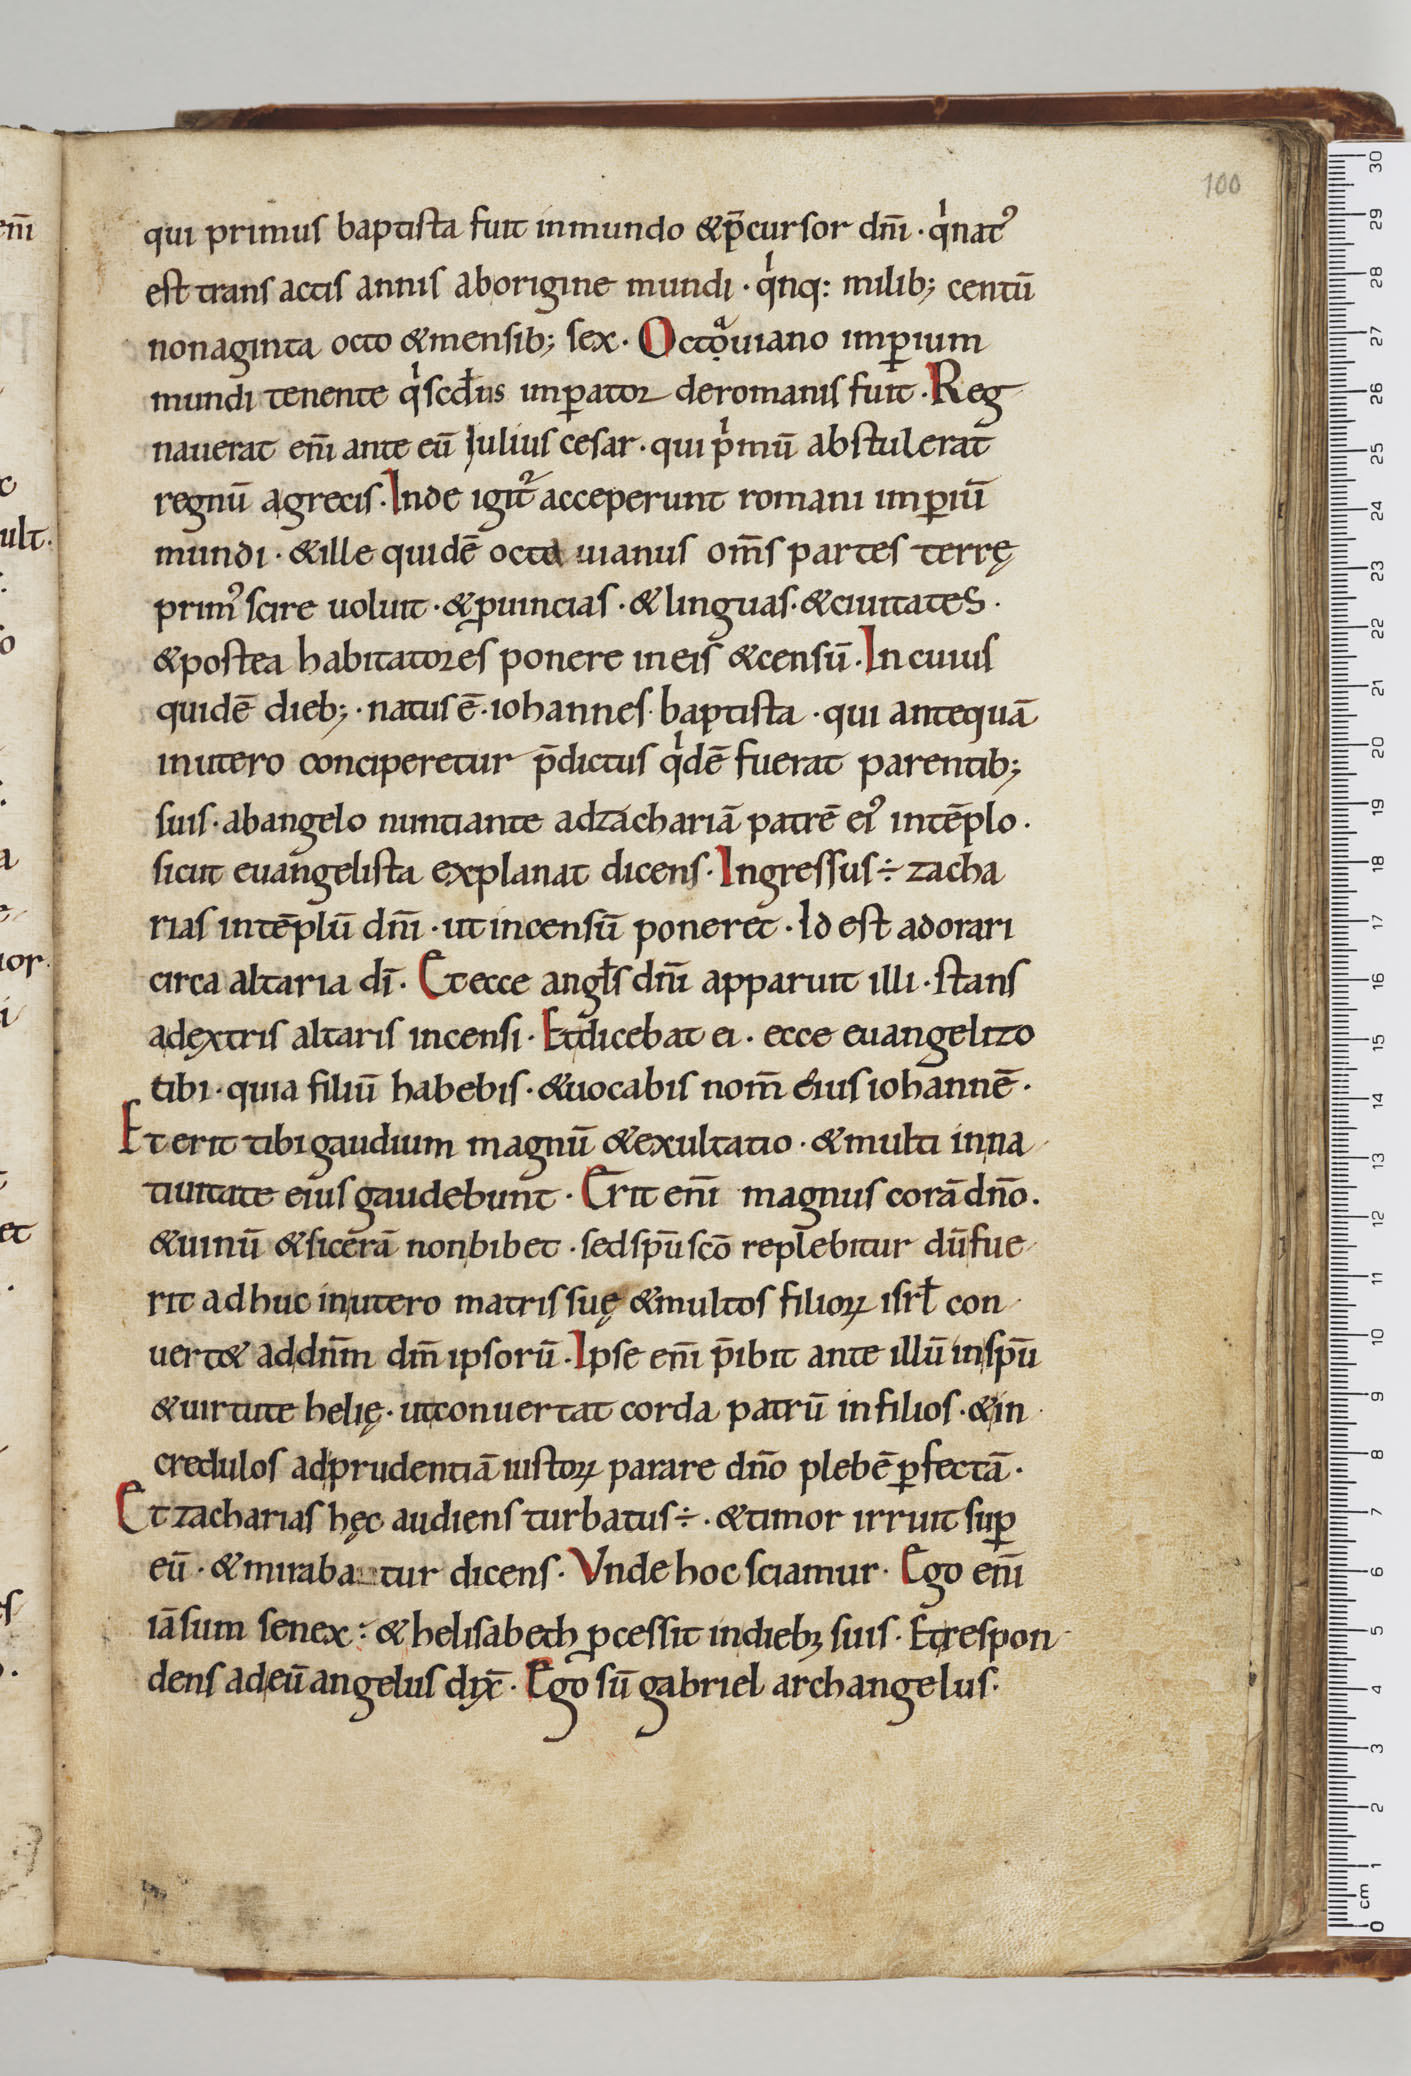 100
qui primus baptista fuit inmundo &p̄cursor dn̄i · qͥnatꝰ
est trans actis annis aborigine mundi · qͥnq: milib; centū
nonaginta octo &mensib; sex · Octoͣuiano imꝑium
mundi tenente qͥ scđus imꝑator deromanis fuit · Reg
nauerat eni̅ ante eū Iulius cesar · qui pͥmū abstulerat
regnū agrecis · Inde igit᷑ acceperunt romani imꝑiū
mundi · &ille quidē octa uianus om̄s partes terrę
primꝰ scire uoluit · &ꝓuincias · &linguas · &ciuitates ·
&postea habitatores ponere ineis &censū · Incuius
quidē dieb; · natus ē · iohannes baptista · qui antequā
inutero conciperetur p̄dictus qͥdē fuerat parentib;
suis · abangelo nuntiante adzachariā patrē eiꝰ intēplo ·
sicut euangelista explanat dicens · Ingressus ÷ zacha
rias intēplū dn̄i · ut incensū poneret · Id est adorari
circa altaria dī · Et ecce angl̄s dn̄i apparuit illi · stans
adextris altaris incensi · Etdicebat ei · ecce euangelizo
tibi · quia filiū habebis · &uocabis nom̄ eius iohannē ·
Et erit tibi gaudium magnū &exultatio · &multi inna
tiuitate eius gaudebunt · Erit eni̅ magnus corā dn̄o .
&uinū &sicerā nonbibet · sed spū scō replebitur dū fue
rit adhuc inutero matris suę &multos filioꝝ isrl̄ con
uert& addn̄m dm̄ ipsorū · Ipse eni̅ p̄ibit ante illū inspū
&uirtute helię · utconuertat corda patrū infilios · &in
credulos adprudentiā iustoꝝ parare dn̄o plebē ꝑfectā ·
Et zacharias hęc audiens turbatus ÷ · &timor irruit suꝑ
eū · &miraba tur dicens · Vnde hoc sciamur · Ego eni̅
iāsum senex : &helisabeth ꝓcessit indieb; suis · Etrespon
dens adeū angelus dix̄ · Ego sū gabriel archangelus ·